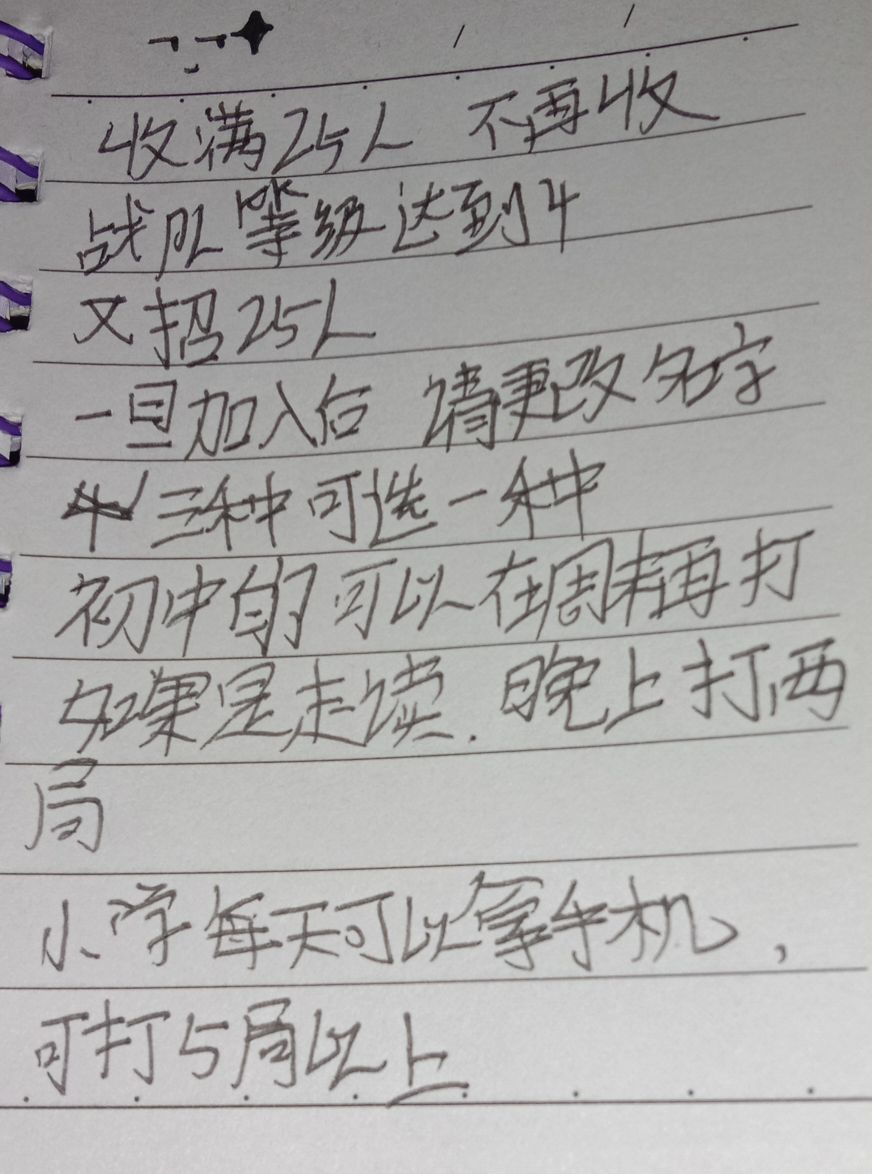 收满25人 不再收
战队等级达到4
又招25人
一旦加入后 请更改名字
三种可选一种
初中的可以在周末再打
如果是走读.晚上打两
局
小学每天可以拿手机,
可打5局以上